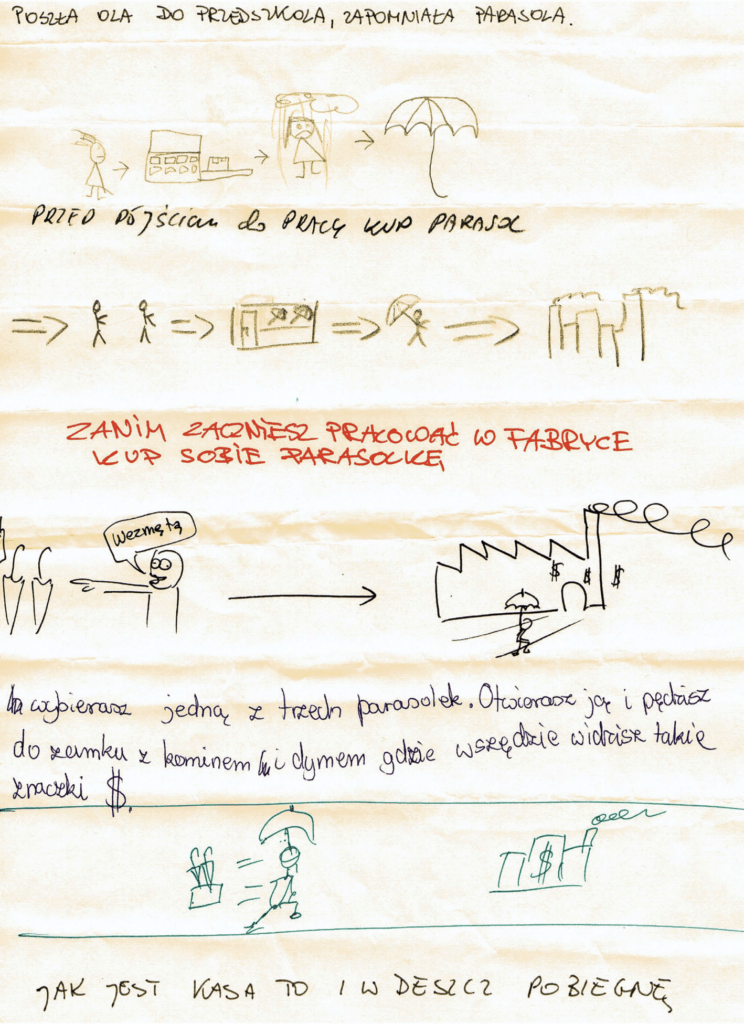 POSZŁA OLA DO PRZEDSZKOLA, ZAPOMNIAŁA PARASOLA.
PRZED PÓJŚCIEM do PRACY KUP PARASOL
ZANIM ZACZNIESZ PRACOWAĆ W FABRYCE
KUP SOBIE PARASOLKĘ
Wezmę tą
$ $ $
wybierasz jedną z trzech parasolek. Otwierasz ją i pędzisz
do zamku z kominem i dymem gdzie wszędzie widzisz takie
znaczki $.
$
JAK JEST KASA TO I W DESZCZ POBIEGNĘ